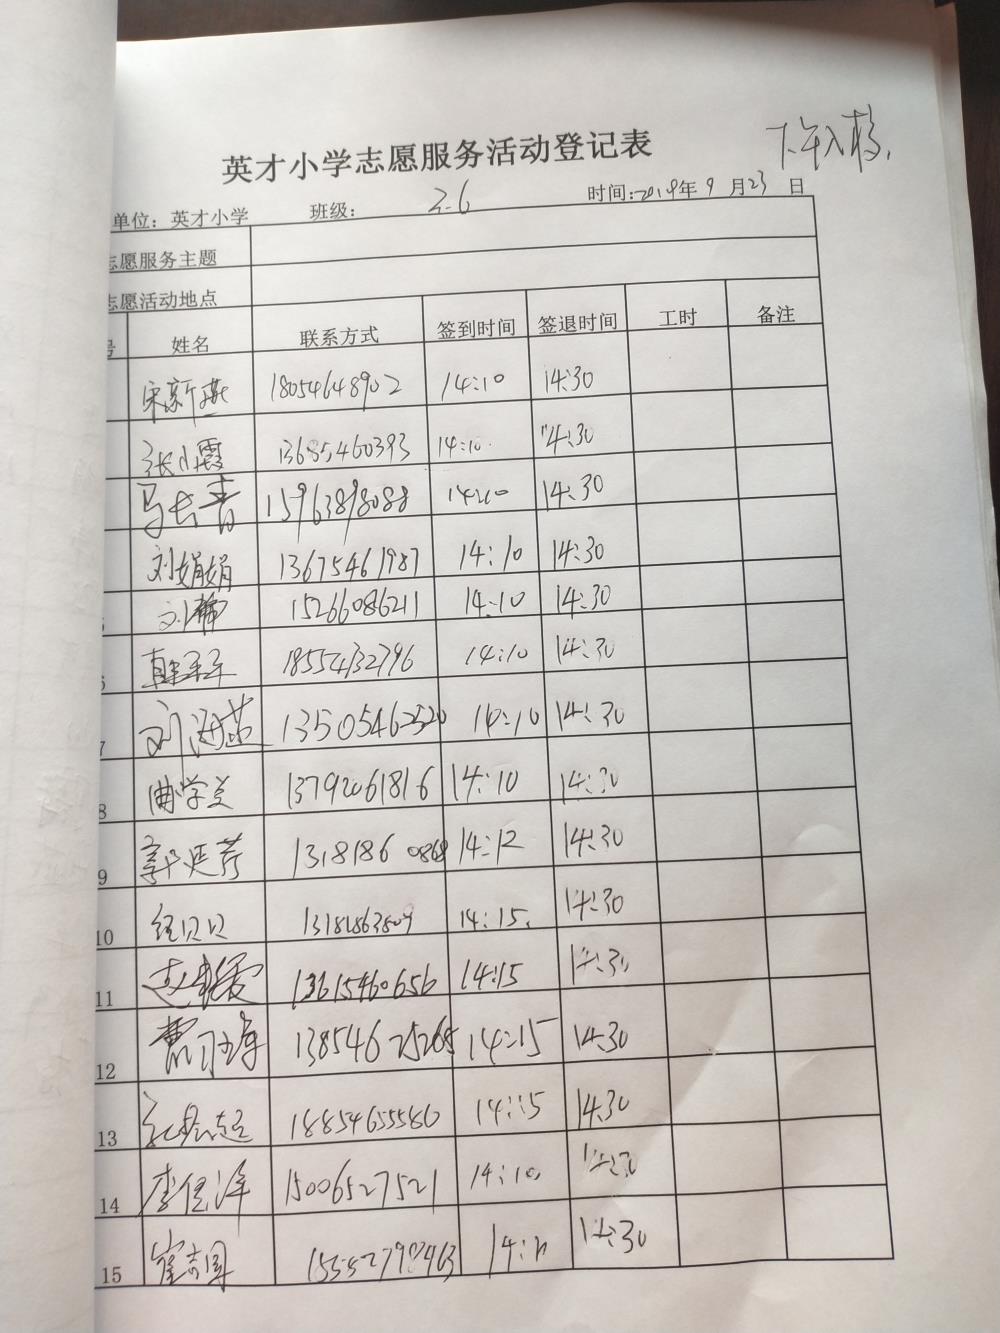 英才小学志愿服务活动登记表
下午入校.
单位：英才小学 班级： 2.6 时间：2019年 9 月 23 日
志愿服务主题
志愿活动地点
号 姓名 联系方式 签到时间 签退时间 工时 备注
宋新燕 18054648902 14:10 14:30
张小霞 13685460393 14:10 14:30
马长青 15963898088 14:10 14:30
刘娟娟 13675461987 14:10 14:30
15266086211 14:10 14:30
6 韩平平 18554132796 14:10 14:30
7 刘海燕 13505462520 14:10 14:30
8 曲学兰 13792061816 14:10 14:30
9 郭延芹 13181860868 14:12 14:30
10 贝贝 14:15. 14:30
11 赵 13615460656 14:15 14:30
12 曹 13854625268 14:15 14:30
13 18854655580 14:15 14:30
14 李 15006527521 14:10 14:30
15 崔志国 15552790463 14:30